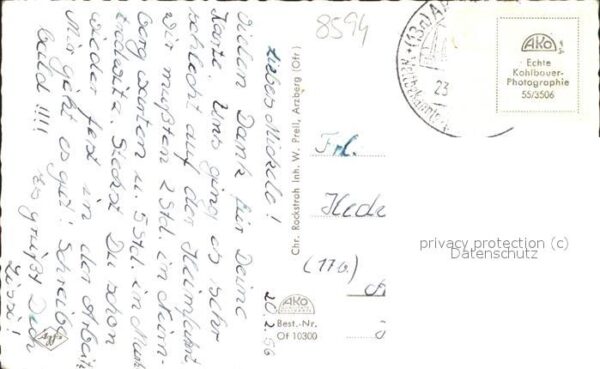 8594
Liebes Mickele!
Vielen Dank für Deine
Karte. Uns ging es sehr
schlecht auf der Heimfahrt
Wir mußten 2 Std. in Nürn-
berg warten u. 5 Std. in Markt
redwitz. Steckst Du schon
wieder fest in der Arbeit
Mir geht es gut! Schreibe
bald!!!!
Es grüßt Dich
Lissi!
20.2.56
Chr. Rockstroh Inh. W. Prell, Arzberg (Ofr)
AKO
Best.-Nr.
Of 10300
Agfa
Frl.
Hede
(17b)
(13a)
23
AKO
Echte
Kohlbauer-
Photographie
55/3506
privacy protection (c)
Datenschutz